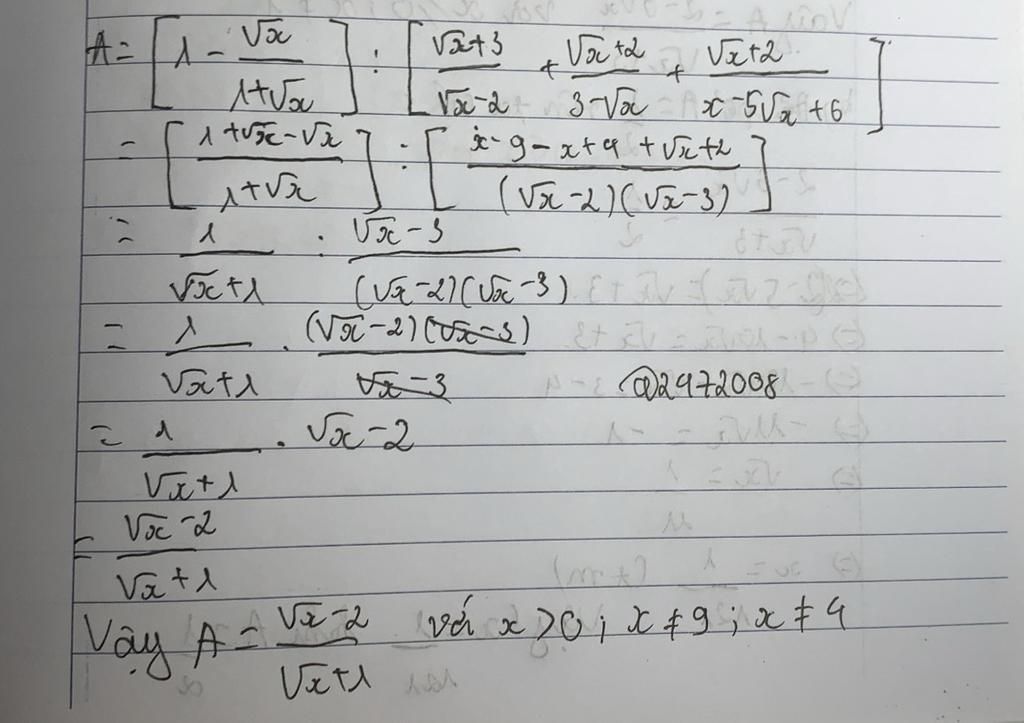 A = [1 - √x/(1+√x)] : [(√x+3)/(√x-2) + (√x+2)/(3-√x) + (√x+2)/(x-5√x+6)]
= [(1+√x-√x)/(1+√x)] : [(x-9-x+4+√x+2)/((√x-2)(√x-3))]
= 1/(√x+1) : (√x-3)/((√x-2)(√x-3))
= 1/(√x+1) . ((√x-2)(√x-3))/(√x-3)
@2472008
= 1/(√x+1) . √x-2
= (√x-2)/(√x+1)
Vậy A = (√x-2)/(√x+1) với x > 0 ; x ≠ 9 ; x ≠ 4